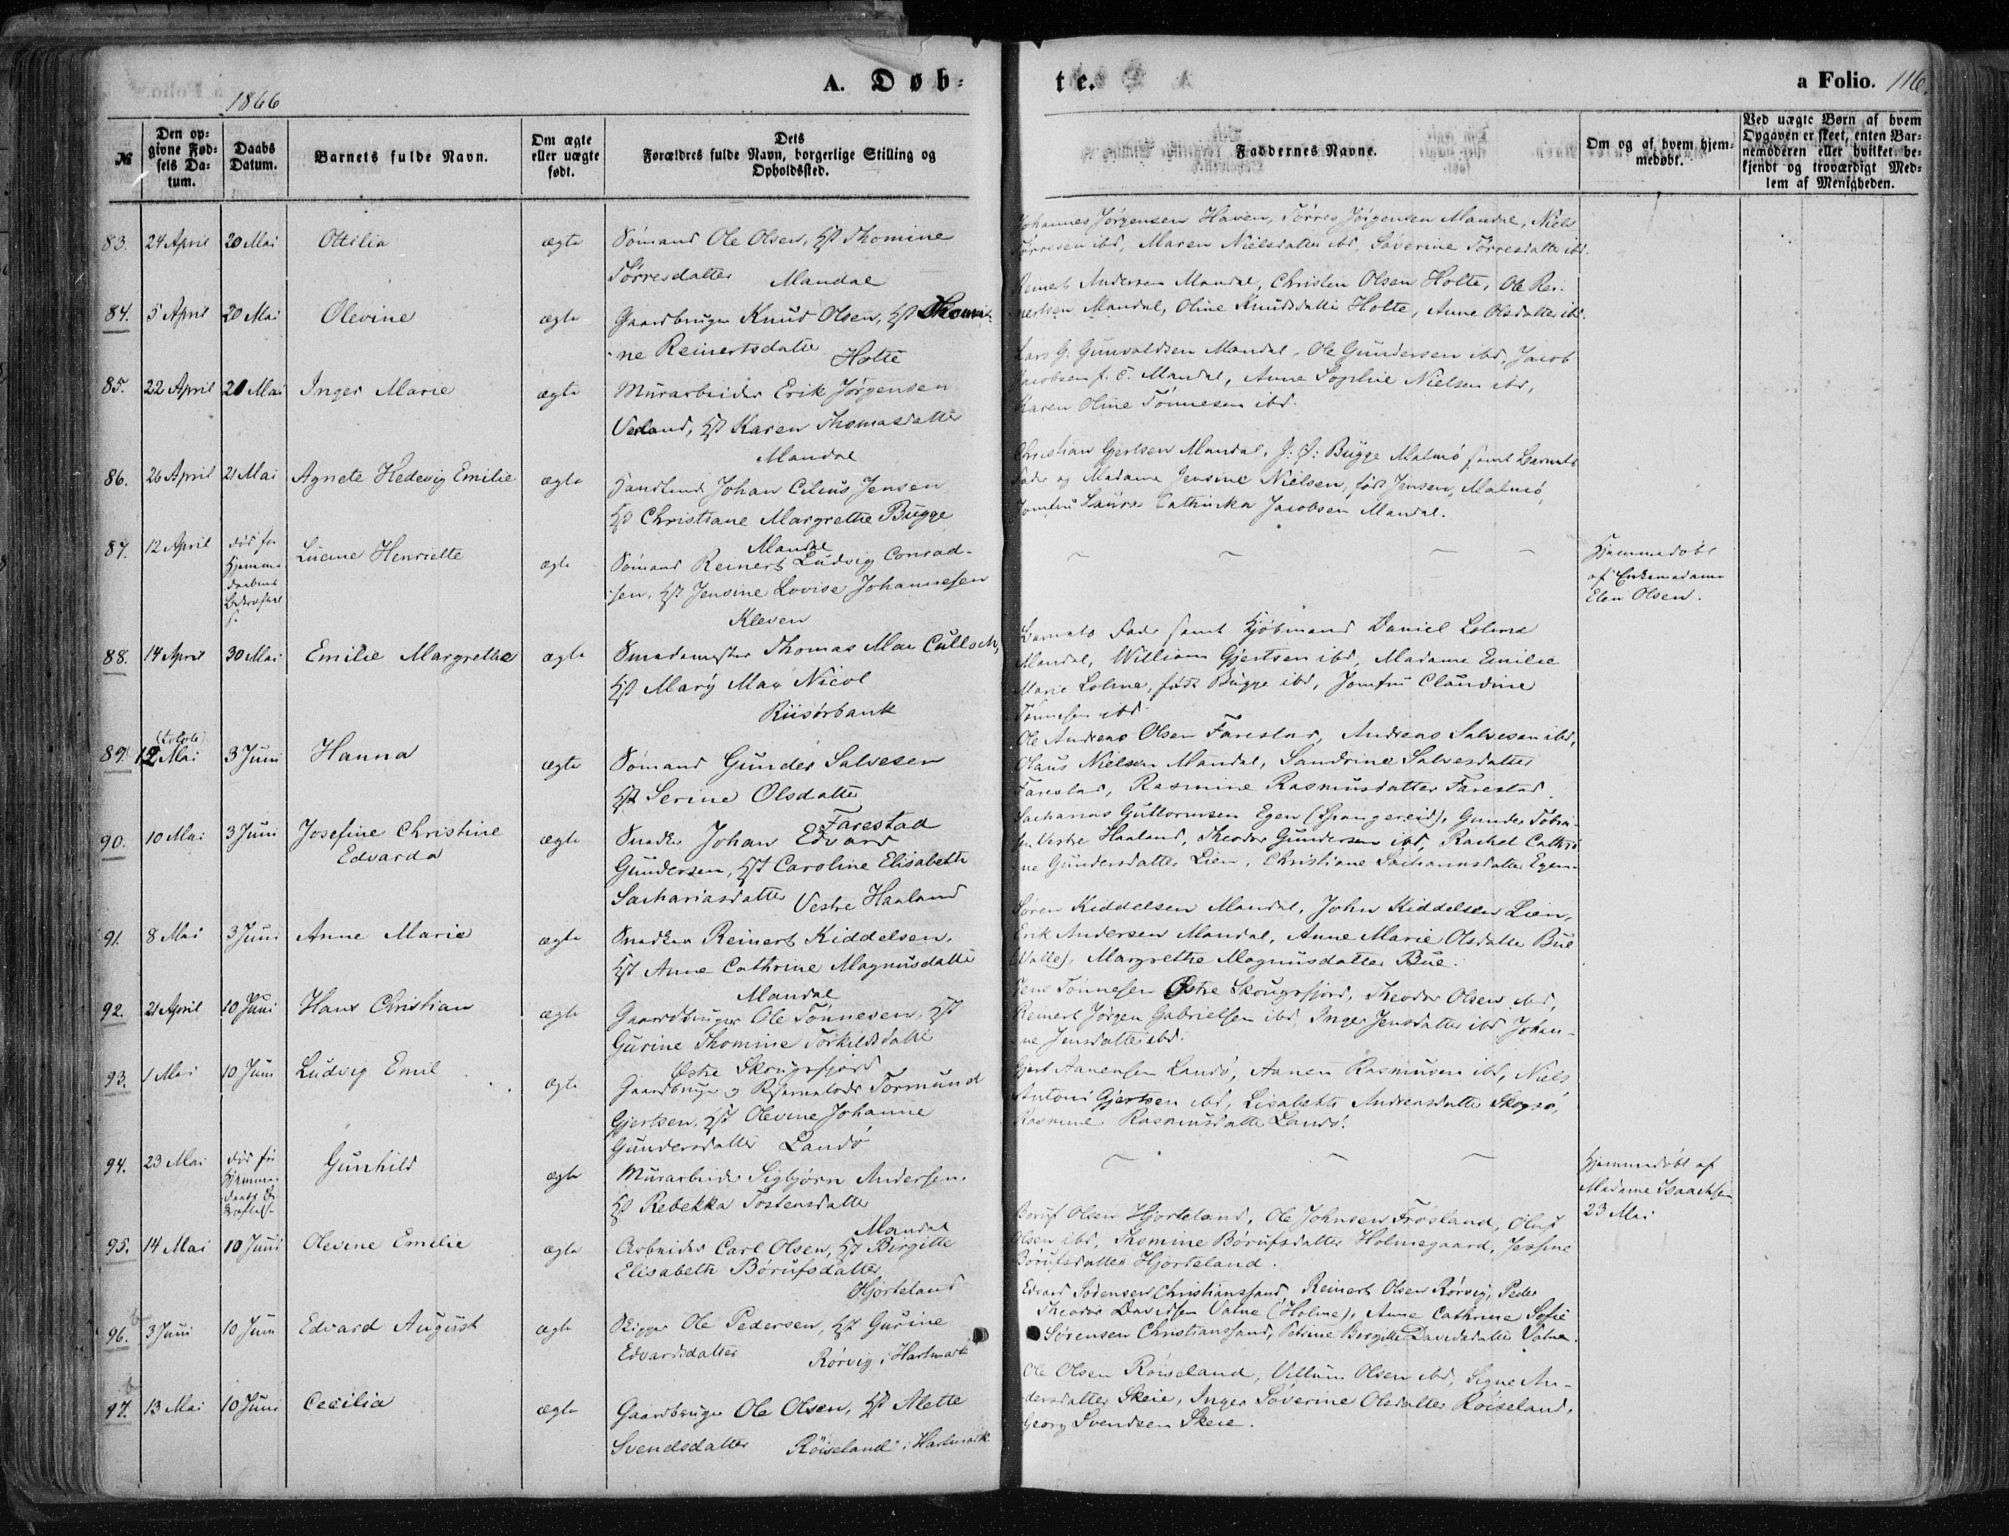 A. Døb-
te.
a Folio. 116.
1866
№
Den op-
givne Fød-
sels Da-
tum.
Daabs
Datum.
Barnets fulde Navn.
Om ægte
eller uægte
født.
Dets
Forældres fulde Navn, borgerlige Stilling og
Opholdssted.
Faddernes Navne.
Om og af hvem hjem-
medøbt.
Ved uægte Børn af hvem
Opgaven er skeet, enten Bar-
nemoderen eller hvilket be-
kjendt og troværdigt Med-
lem af Menigheden.
83. 24 April 20 Mai Ottilia ægte Sømand Ole Olsen, Hst Thomine
Tørresdatter Mandal
Johannes Jørgensen Haven, Tørres Jørgensen Mandal, Niels
Tørresen ibd, Maren Nielsdatter ibd, Severine Tørresdatter ibd.
84. 5 April 20 Mai Olevine ægte Gaardbruger Knud Olsen, Hst Thomi-
ne Reinertsdatter Holte
Reinert Andersen Mandal, Christen Olsen Holte, Ole Rei-
nertsen Mandal, Oline Knudsdatter Holte, Anne Olsdatter ibd.
85. 22 April 21 Mai Inger Marie ægte Murarbeider Erik Jørgensen
Verland, Hst Karen Thomasdatter
Mandal
Lars G. Gunvaldsen Mandal, Ole Gundersen ibd, Jacob
Jacobsen f. C. Mandal, Anne Sophie Nielsen ibd,
Karen Oline Tønnesen ibd.
86. 26 April 21 Mai Agnete Hedevig Emilie ægte Handlende Johan Cilius Jensen
Hst Christiane Margrethe Bugge
Mandal
Christian Gjertsen Mandal, J: Ø: Bugge Malmø samt Barnets
Fader og Madame Jensine Nielsen, født Jensen, Malmø,
Jomfru Laura Cathinka Jacobsen Mandal.
87. 12 April død før
Hjemme-
daabens
Bekræftelse
Lucine Henriette ægte Sømand Reinert Ludvig Conrad-
sen, Hst Jensine Lovise Johannesen
Kleven
Hjemmedøbt
af Enkemadame
Elen Olsen.
88. 14 April 30 Mai Emilie Margrethe ægte Smedemester Thomas Mac Culloch,
Hst Mary Mac Nicol
Riisørbank
Barnets Fader samt Kjøbmand Daniel Lolme
Mandal, William Gjertsen ibd, Madame Emilie
Marie Lolme, født Bugge ibd, Jomfru Claudine
Tønnesen ibd.
89. (tolvte)
12 Mai 3 Juni Hanna ægte Sømand Gunder Salvesen
Hst Serine Olsdatter
Farestad
Ole Andreas Olsen Farestad, Andreas Salvesen ibd,
Olaus Nielsen Mandal, Sandrine Salvesdatter
Farestad, Rasmine Rasmusdatter Farestad.
90. 10 Mai 3 Juni Josefine Christine
Edvarda ægte Snedker Johan Edvard
Gundersen, Hst Caroline Elisabeth
Sachariasdatter Vestre Haaland
Sacharias Guttormsen Egen (Spangereid), Gunder Tobia-
sen Vestre Haaland, Theodor Gundersen ibd, Rachel Cathri-
ne Gundersdatter Lien, Christiane Sachariasdatter Egen.
91. 8 Mai 3 Juni Anne Marie ægte Snedker Reinert Kiddelsen,
Hst Anne Cathrine Magnusdatter
Mandal
Søren Kiddelsen Mandal, John Kiddelsen Lien,
Erik Andersen Mandal, Anne Marie Olsdatter Bue
(Valle), Margrethe Magnusdatter Bue.
92. 21 April 10 Juni Hans Christian ægte Gaardbruger Ole Tønnesen, Hst
Gurine Thomine Torkildsdatter
Østre Skougsfjord
Jens Tønnesen Østre Skougsfjord, Theodor Olsen ibd,
Reinert Jørgen Gabrielsen ibd, Inger Jensdatter ibd, Johan-
ne Jensdatter ibd.
93. 1 Mai 10 Juni Ludvig Emil ægte Gaardbruger Tormund
Gjertsen, Hst Olevine Johanne
Gundersdatter Landø
Gjert Aanensen Landø, Aanen Rasmusen ibd, Niels
Antoni Gjertsen ibd, Lisabeth Andreasdatter Skogsø,
Rasmine Rasmusdatter Landø.
94. 23 Mai død før
Hjemme-
daabs Be-
kræftelse
Gunhild ægte Murarbeider Sigbjørn Andersen,
Hst Rebekka Tostensdatter
Mandal
Hjemmedøbt af
Madame Isaachsen
23 Mai
95. 14 Mai 10 Juni Olevine Emilie ægte Arbeider Carl Olsen, Hst Birgitte
Elisabeth Børufsdatter
Hjorteland
Boruf Olsen Hjorteland, Ole Johnsen Frøsland, Oluf
Olsen ibd, Thomine Børufsdatter Holmegaard, Jensine
Børufsdatter Hjorteland.
96. 3 Juni 10 Juni Edvard August ægte Skipper Ole Pedersen, Hst Gurine
Edvardsdatter Rørvig i Hartmark
Edvard Sørensen Christianssand, Reinert Olsen Rørvig, Peder
Theodor Davidsen Valne (Holme), Anne Cathrine Sofie
Sørensen Christianssand, Petrine Birgitte Davidsdatter Valne.
97. 13 Mai 10 Juni Cecilia ægte Gaardbruger Ole Olsen, Hst Alette
Svendsdatter Røiseland i Hartmark
Ole Olsen Røiseland, Villum Olsen ibd, Signe An-
dersdatter Skeie, Inger Søverine Olsdatter Røiseland,
Georg Svendsen Skeie.